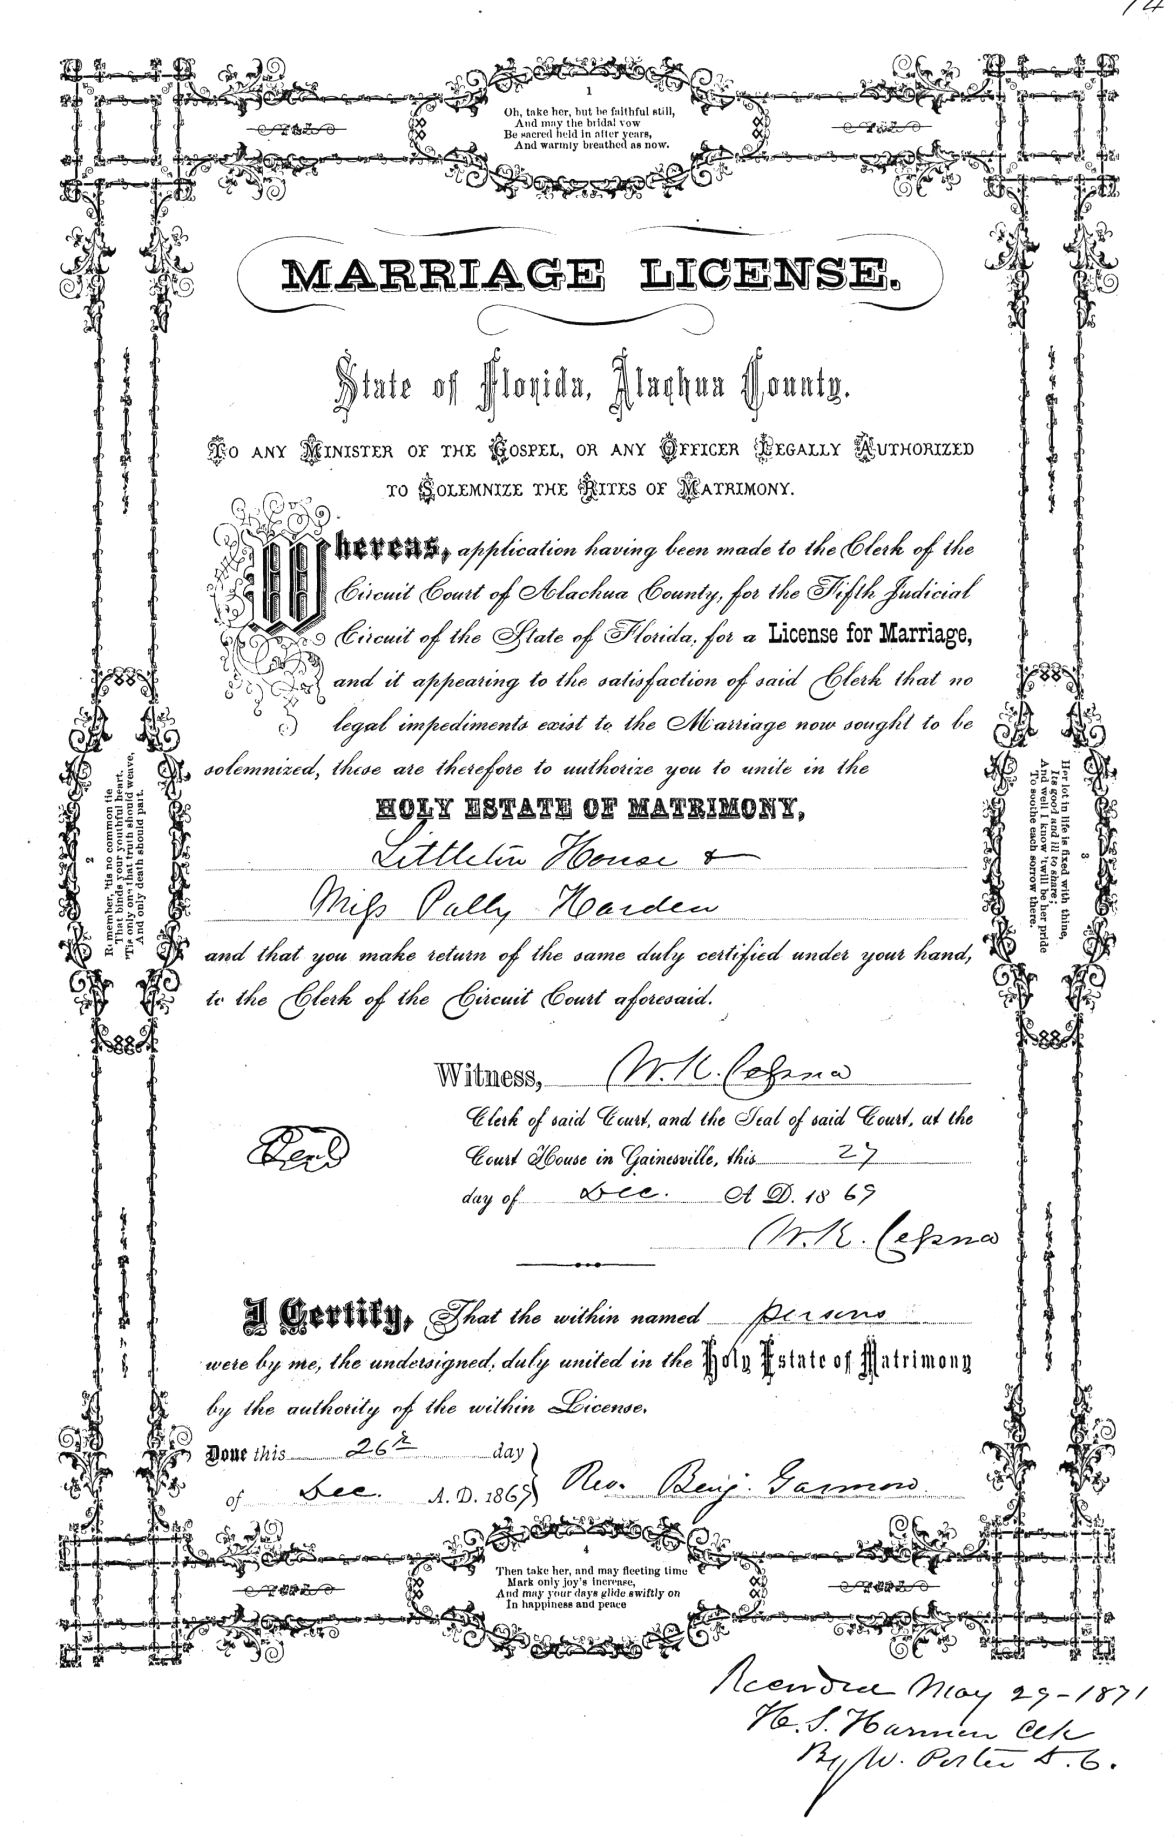 14
1
Oh, take her, but be faithful still,
And may the bridal vow
Be sacred held in after years,
And warmly breathed as now.
MARRIAGE LICENSE.
State of Florida, Alachua County.
TO ANY MINISTER OF THE GOSPEL, OR ANY OFFICER LEGALLY AUTHORIZED
TO SOLEMNIZE THE RITES OF MATRIMONY.
Whereas, application having been made to the Clerk of the
Circuit Court of Alachua County, for the Fifth Judicial
Circuit of the State of Florida, for a License for Marriage,
and it appearing to the satisfaction of said Clerk that no
legal impediments exist to the Marriage now sought to be
solemnized, these are therefore to authorize you to unite in the
HOLY ESTATE OF MATRIMONY,
Littleton House &
Miss Polly Harden
and that you make return of the same duly certified under your hand,
to the Clerk of the Circuit Court aforesaid.
2
Remember, 'tis no common tie
That binds your youthful heart,
'Tis only one that truth should weave,
And only death should part.
3
Her lot in life is fixed with thine,
Its good and ill to share;
And well I know 'twill be her pride
To soothe each sorrow there.
Witness, W. K. Cessna
Clerk of said Court, and the Seal of said Court, at the
Seal
Court House in Gainesville, this 27
day of Dec. A D. 1869
W. K. Cessna
I Certify, That the within named persons
were by me, the undersigned, duly united in the Holy Estate of Matrimony
by the authority of the within License.
Done this 26th day
of Dec. A. D. 1869 } Rev. Benj. Garmon
4
Then take her, and may fleeting time
Mark only joy's increase,
And may your days glide swiftly on
In happiness and peace
Recorded May 29-1871
H. S. Harmon Clk
By W. Porter D. C.